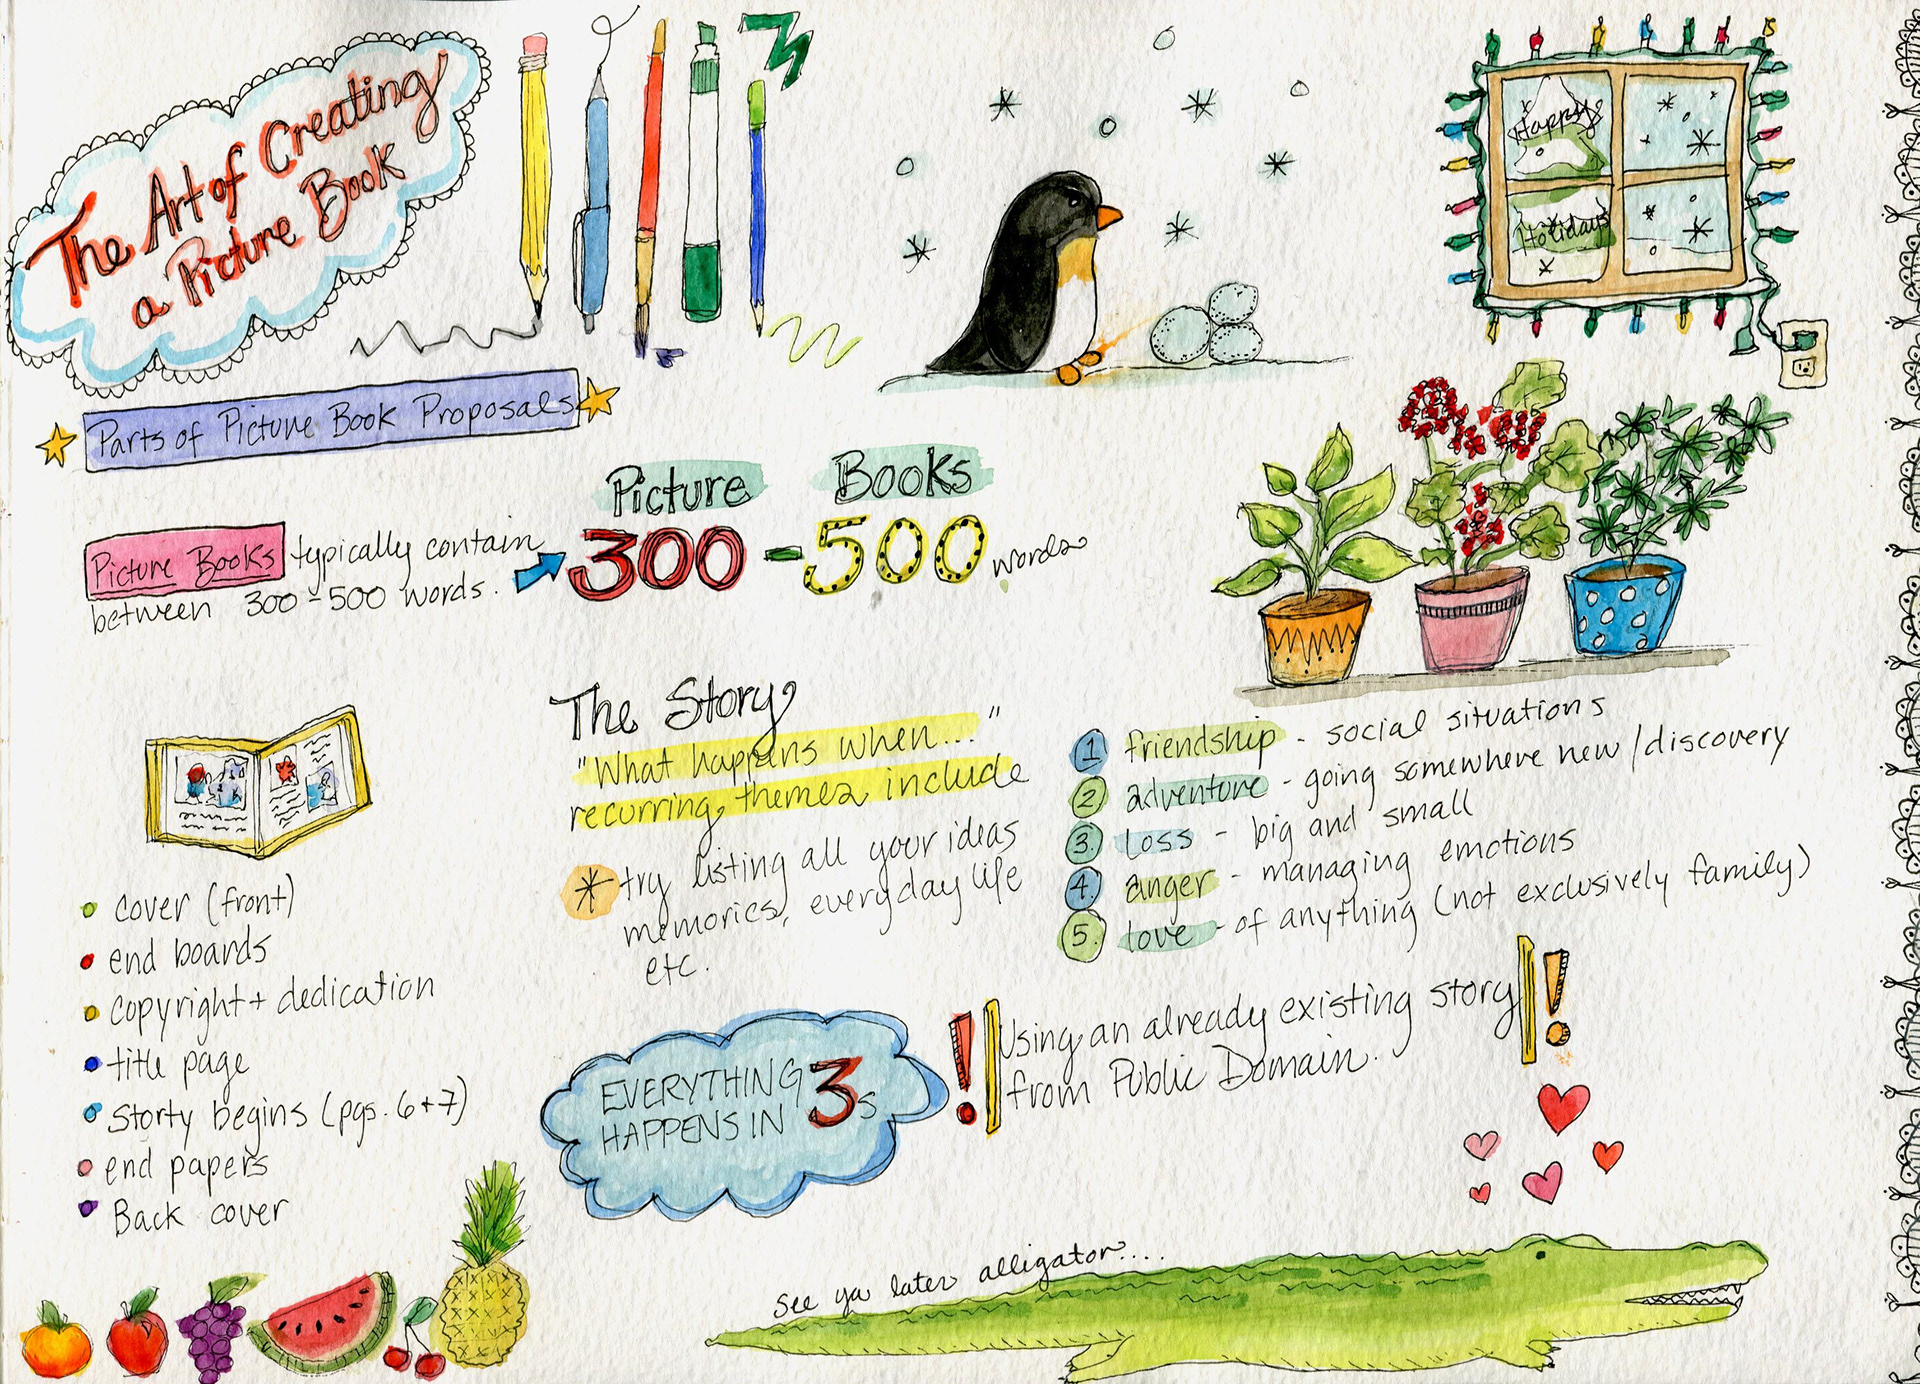 The Art of Creating
a Picture Book
Happy
Holidays
Parts of Picture Book Proposals
Picture Books typically contain
between 300-500 words.
Picture Books
300-500 words
cover (front)
end boards
copyright + dedication
title page
storty begins (pgs. 6+7)
end papers
Back cover
The Story
"What happens when..."
recurring themes include
* try listing all your ideas
memories, everyday life
etc.
1 friendship - social situations
2 adventure - going somewhere new/discovery
3. loss - big and small
4. anger - managing emotions
5. love - of anything (not exclusively family)
EVERYTHING
HAPPENS IN 3s
! Using an already existing story !
from Public Domain.
see ya later alligator....